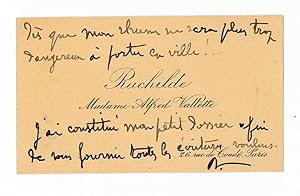 Dès que mon rhume ne sera plus trop
dangereux à porter en ville !...
Rachilde
Madame Alfred Vallette
J'ai constitué mon petit dossier afin
de vous fournir toutes les voulues.
26, rue de Condé, Paris
R.